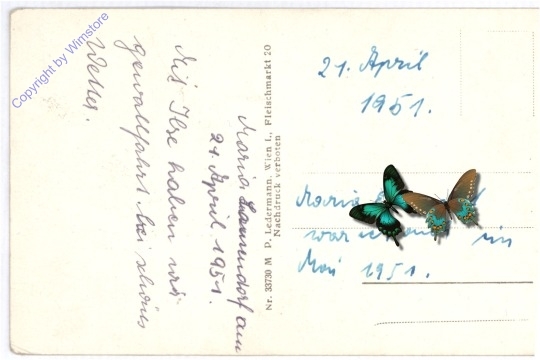 Copyright by Wimstore
Maria Lanzendorf am
21. April 1951.
Mit Ilse haben wir
gewallfahrt bei schönes
Wetter.
Nr. 33730 M D. Ledermann, Wien I., Fleischmarkt 20
Nachdruck verboten
21. April
1951.
Maria
war im
Mai 1951.